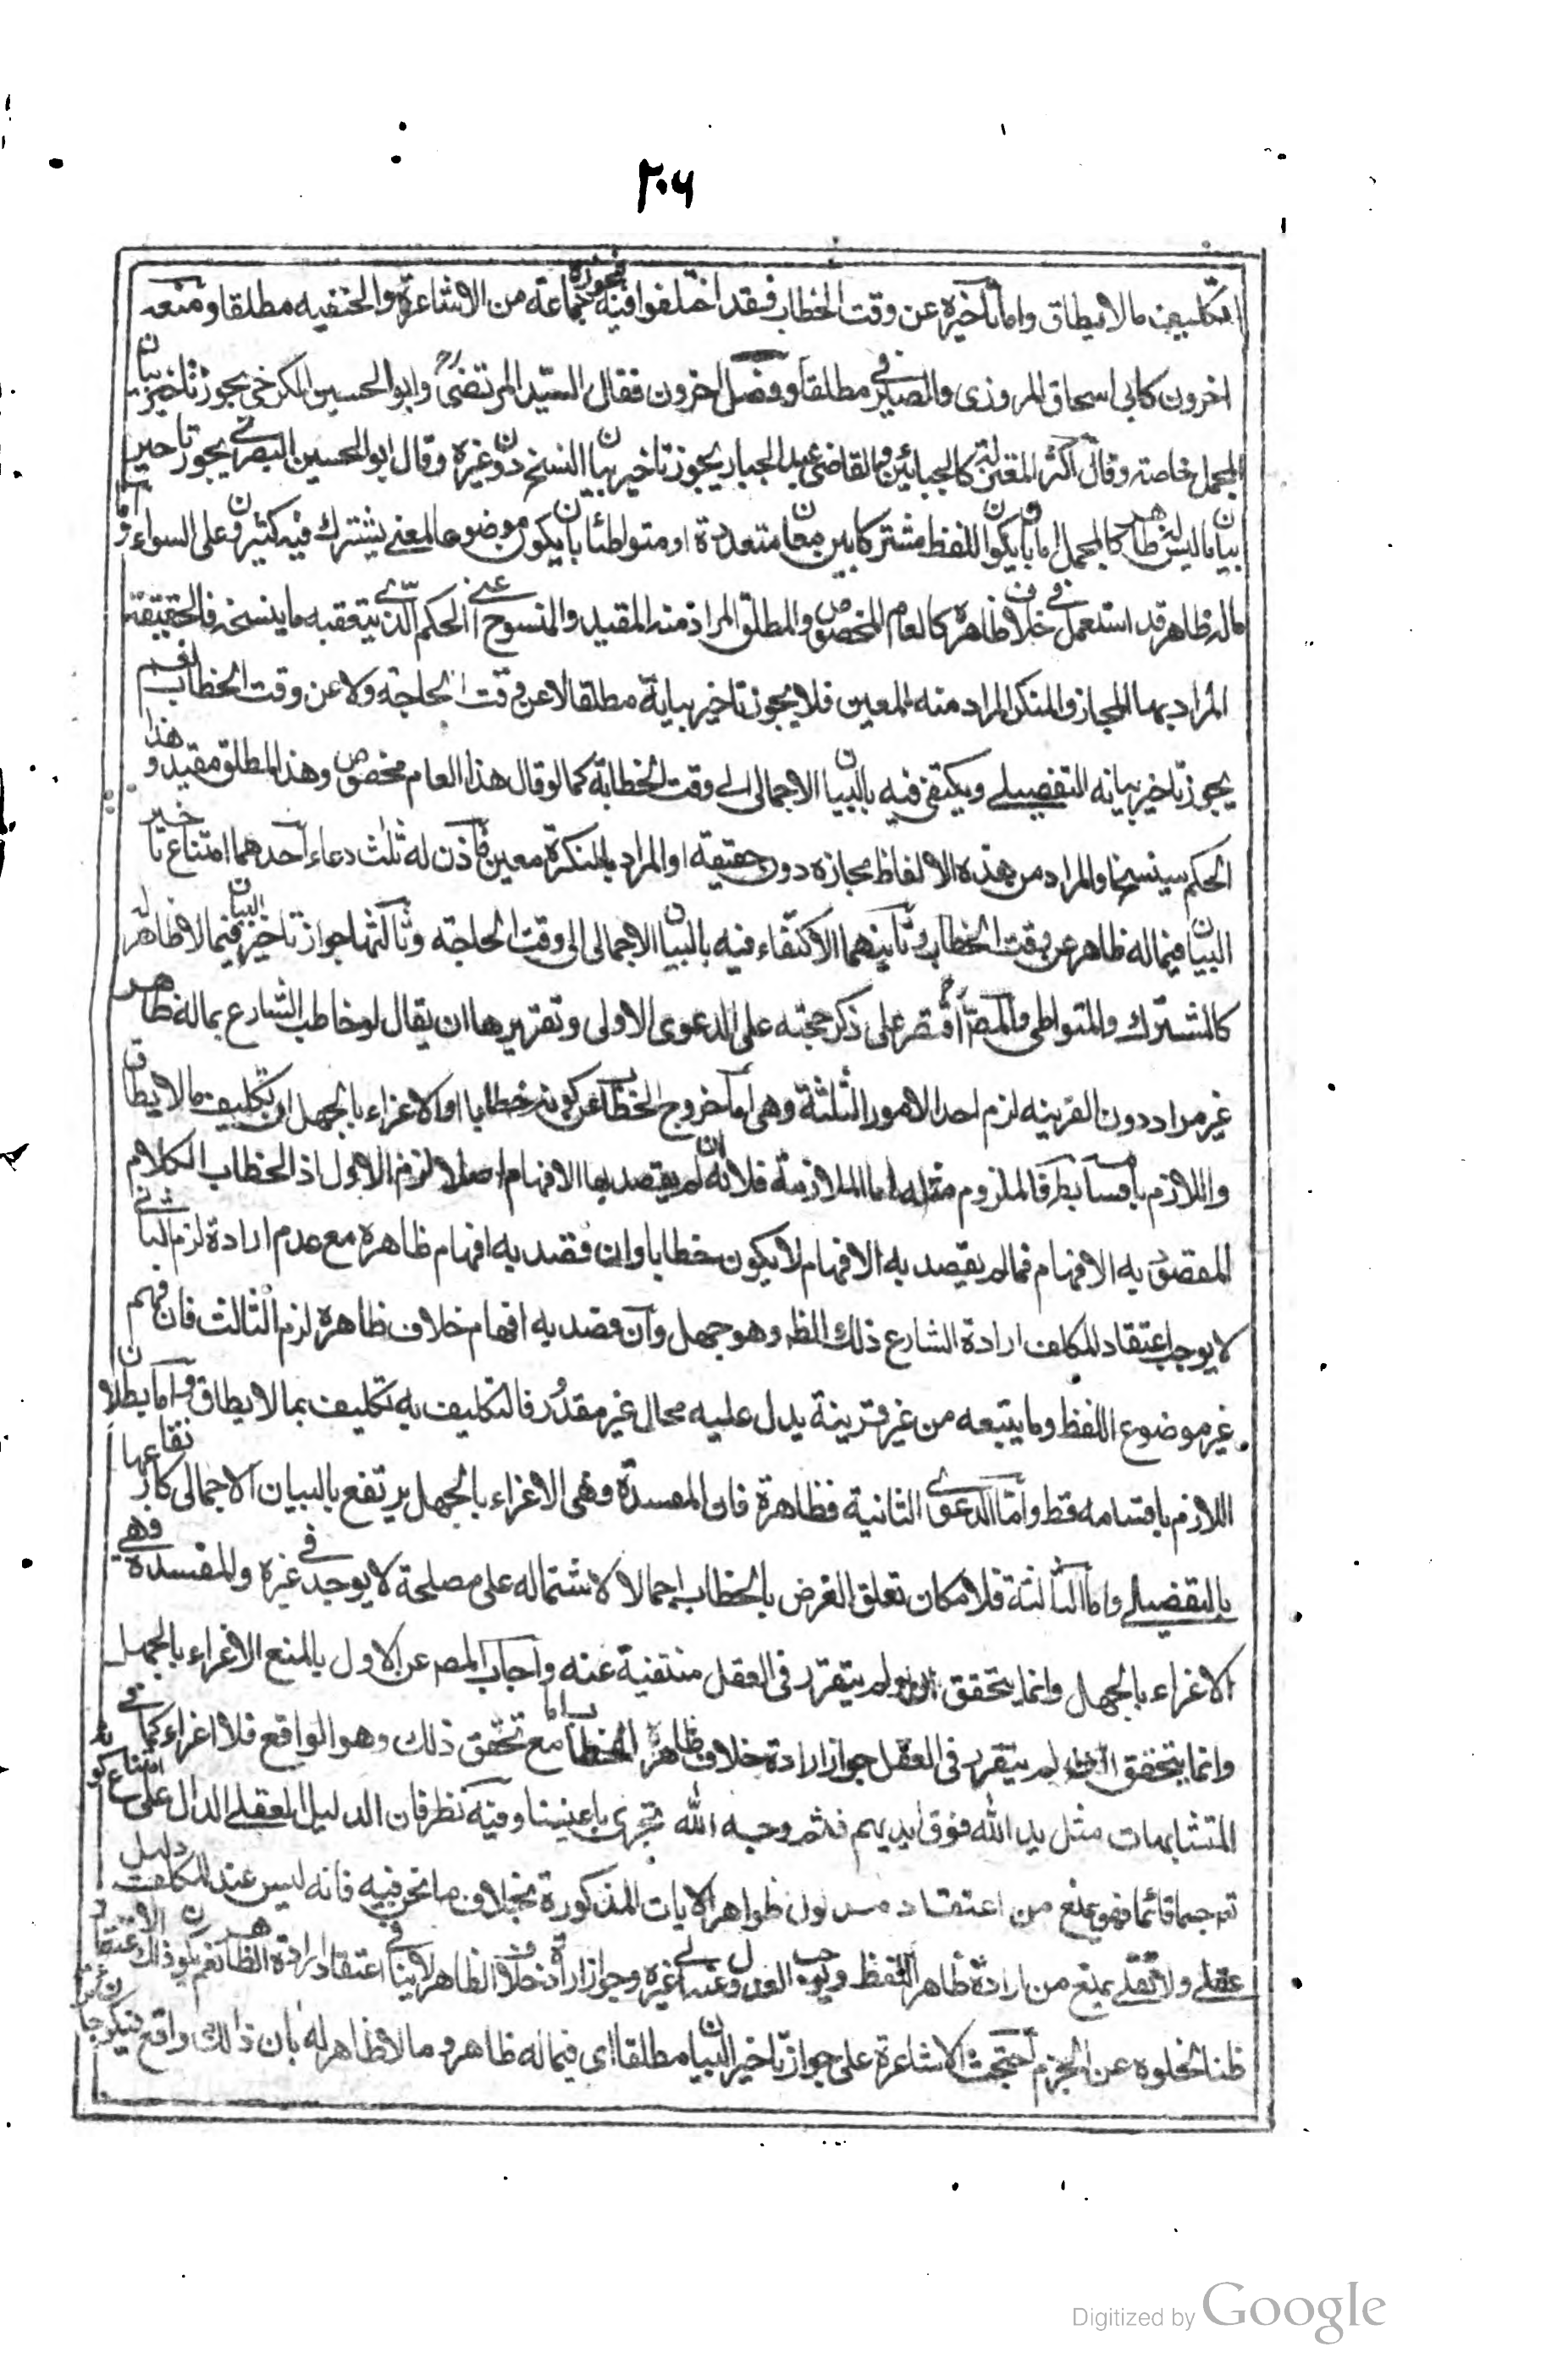 ٢٠٦
التكليف ما لا يطاق واما تأخيره عن وقت الخطاب فقد اختلفوا فيه فجوزه جماعة من الاشاعرة والحنفيه مطلقا ومنعه
اخرون كابى اسحاق المروزى والصيرفي مطلقا وفصل اخرون فقال السيد المرتضى رح وابو الحسين الكرخى يجوز تاخير بيان
المجمل خاصة وقال اكثر المعتزلة كالجبائين والقاضى عبد الجبار يجوز تاخير بيان النسخ دون غيره وقال ابو الحسين البصرى يجوز تاخير
بيان ما ليس له ظاهر كالمجمل اما بان يكون اللفظ مشتركا بين معان متعددة او متواطئا بان يكون موضوعا لمعنى يشترك فيه كثيرون على السواء واما
ماله ظاهر قد استعمل في خلاف ظاهره كالعام المخصوص والمطلق المراد منه المقيد والمنسوخ اعني الحكم الذي يتعقبه ما ينسخه فالحقيقة
المراد بها المجاز والمنكر المراد منه المعين فلا يجوز تاخير بيانه مطلقا لا عن وقت الحاجة ولا عن وقت الخطاب نعم
يجوز تاخير بيانه التفصيلى ويكتفى فيه بالبيان الاجمالى الى وقت الخطابة كما لو قال هذا العام مخصوص وهذا المطلق مقيد وهذا
الحكم سينسخ والمراد من هذه الالفاظ مجازه دون حقيقة او المراد بالمنكرة معين فاذن له ثلث دعاء احدهما امتناع تاخير
البيان فيما له ظاهر عن وقت الخطاب وثانيهما الاكتفاء فيه بالبيان الاجمالى الى وقت الحاجة وثالثها جواز تاخير البيان فيما لا ظاهر له
كالمشترك والمتواطى والمص رح اقتصر على ذكر حجته على الدعوى الاولى وتقريرها ان يقال لو خاطب الشارع بماله ظاهر
غير مراد دون القرينه لزم احد الامور الثلثة وهى اما خروج الخطاب عن كونه خطابا او الاغراء بالجهل او تكليف ما لا يطاق
واللازم باقسامه بط فالملزوم مثله اما الملازمة فلانه ان لم يقصد بها الافهام اصلا لزم الاول اذ الخطاب الكلام
المقصود به الافهام فما لم يقصد به الافهام لا يكون خطابا وان قصد به افهام ظاهره مع عدم ارادة لزم الثاني
لا يوجب اعتقاد المكلف ارادة الشارع ذلك الظ وهو جهل وان قصد به افهام خلاف ظاهره لزم الثالث فان فهم
غير موضوع اللفظ وما يتبعه من غير قرينة يدل عليه محال غير مقدور فالتكليف به تكليف بما لا يطاق واما بطلان
اللازم باقسامه فظ واما الدعوى الثانية فظاهرة فان المفسدة وهى الاغراء بالجهل يرتفع بالبيان الاجمالى كارتفاعها
بالتفصيلى واما الثالثة فلامكان تعلق الغرض بالخطاب اجمالا لاشتماله على مصلحة لا يوجد في غيره والمفسدة وهي
الاغراء بالجهل وانما يتحقق لو لم يتقرر فى العقل منتفية عنه واجاب المص عن الاول بالمنع الاغراء بالجهل
وانما يتحقق لم يتقرر فى العقل جواز ارادة خلاف ظاهر الخطاب اما مع تحقق ذلك وهو الواقع فلا اغراء كما في
المتشابهات مثل يد الله فوق ايديهم فثم وجه الله تجرى باعيننا وفيه نظر فان الدليل العقلى الدال على امتناع كونه
تعه جسما قائما فهو يمنع من اعتقاد مدلول ظواهر الايات المذكورة بخلاف ما نحن فيه فانه ليس عند المكلف دليل
عقلى ولا نقلى يمنع من ارادة ظاهر اللفظ غيره وجواز ارادة خلاف الظاهر لا ينافي اعتقاد ارادة الظاهر نعم يكون ذلك الاعتقاد
ظنا لخلوه عن الجزم احتجت الاشاعرة على جواز تاخير البيان مطلقا اى فيما له ظاهر وما لا ظاهر له بان ذلك واقع فيكون جائزا
Digitized by Google